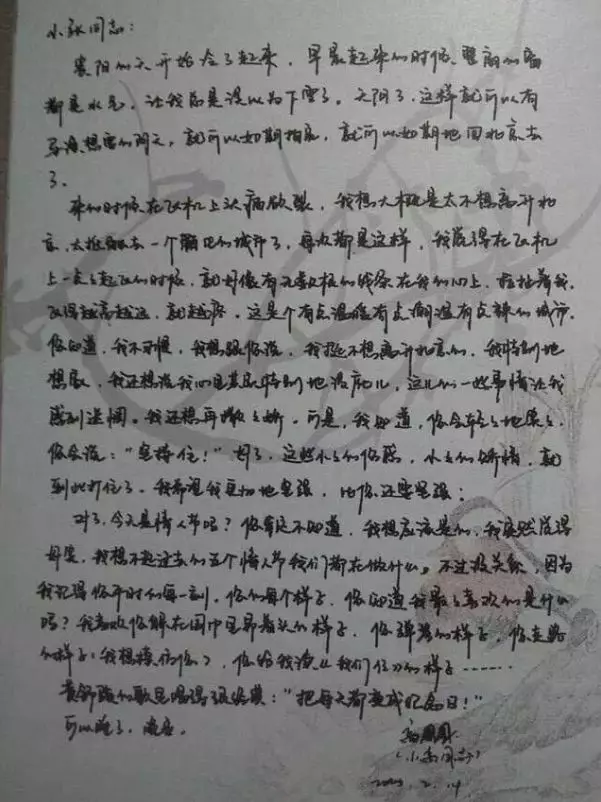 小张同志:
襄阳的天开始冷了起来，早晨起来的时候，整扇的窗
都是水气，让我总是误以为下雪了。天阴了，这样就可以有
导演想要的阴天，就可以如期拍戏，就可以如期地回北京去
了。
来的时候在飞机上头痛欲裂，我想大概是太不想离开北
京，去一个陌生的城市了，每次都是这样，我觉得在飞机
上一点点起飞的时候，就好像有无数根的线系在我的心上，拉扯着我，
飞得越高越远，就越疼。这是个有点温暖有点潮湿有点辣的城市。
你知道，我不习惯，我想跟你说，我挺不想离开北京的，我特别地
想家，我还想说我心里其实特别地没底儿，这儿的一些事情让我
感到迷惘。我还想再撒撒娇。可是，我知道，你会轻轻地
你会说："坚持住！"好了，这些小小的伤感，小小的矫情，就
到此打住了。我希望我更加地坚强，比你还要坚强；
对了，今天是情人节吗？你肯定不知道，我想应该是的，我突然觉得
我想不起过去的五个情人节我们都在做什么。不过没关系，因为
我记得你平时的每一刻，你的每个样子，你知道我最喜欢的是什么
吗？我喜欢你躲在围巾里晃着头的样子，你弹琴的样子，你走路
的样子（我想模仿你），你给我读《我们仨》的样子……
黄舒骏的歌里唱得很好："把每天都变成纪念日！"
可以睡了，晚安。
(小高同志)
2.14